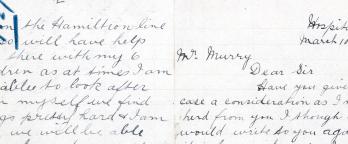 on the Hamilton line
so will have helps
there with my 6
dren as at times I am
ables to look after
myself we find
gs pretty hard & I am
we will be able
Hospit
March 10
Mr Murry
Dear Sir
Have you give
case a consideration as I
herd from you I though
would write to you aga